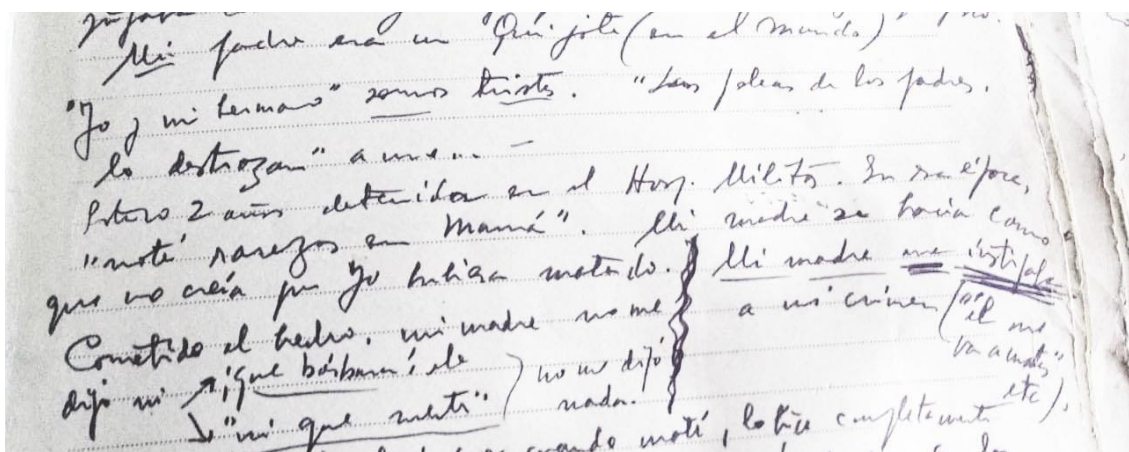 Mi padre era un Quijote (en el mundo)
"Yo y mi hermano" somos tristes. "Las peleas de los padres.
lo destrozan" a uno... —
Estuvo 2 años detenido en el Hosp. Militar. En esa época,
"noté rarezas en Mamá". Mi madre se hacía como
que no creía que yo hubiera matado. Mi madre me instigaba
Cometido el hecho, mi madre no me a mi crimen ("él me
dijo ni "¡que bárbaro!, ele no me dijo va a matar"
"ni que sentí" nada. etc).
cuando maté, lo hice completamente